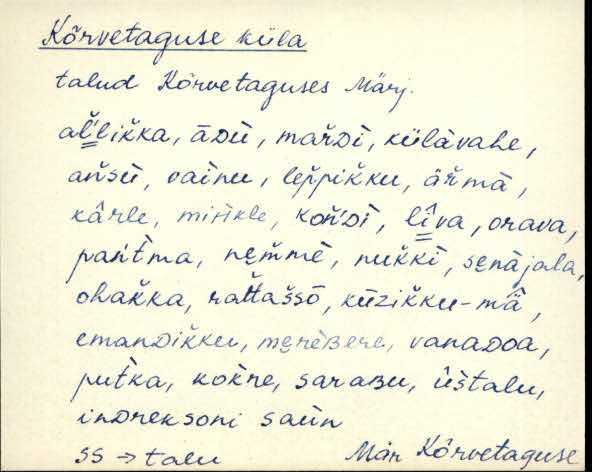 Kõrvetaguse küla
talud Kõrvetaguses Märj.
al̆'likka, āᴅù, mař̆ᴅì, külàvahe,
ań̆sù, vaìnu, lep̆pikku, äř̆mā,
kârle, mir̀ikle, koń̆ᴅì, lîva, orava,
pań̀t̀ma, nẹm̆mè, nuk̆kì, sẹnàjala,
ohak̆ka, rat̆taš̆sō, kūzik̆ku-mä̂,
emanᴅik̆ku, mẹrèʙere, vanaᴅoa,
put̀ka, kok̀re, saraʙu, ûš̆talu,
inᴅreksoni saùn
ss → talu Mär Kõrvetaguse